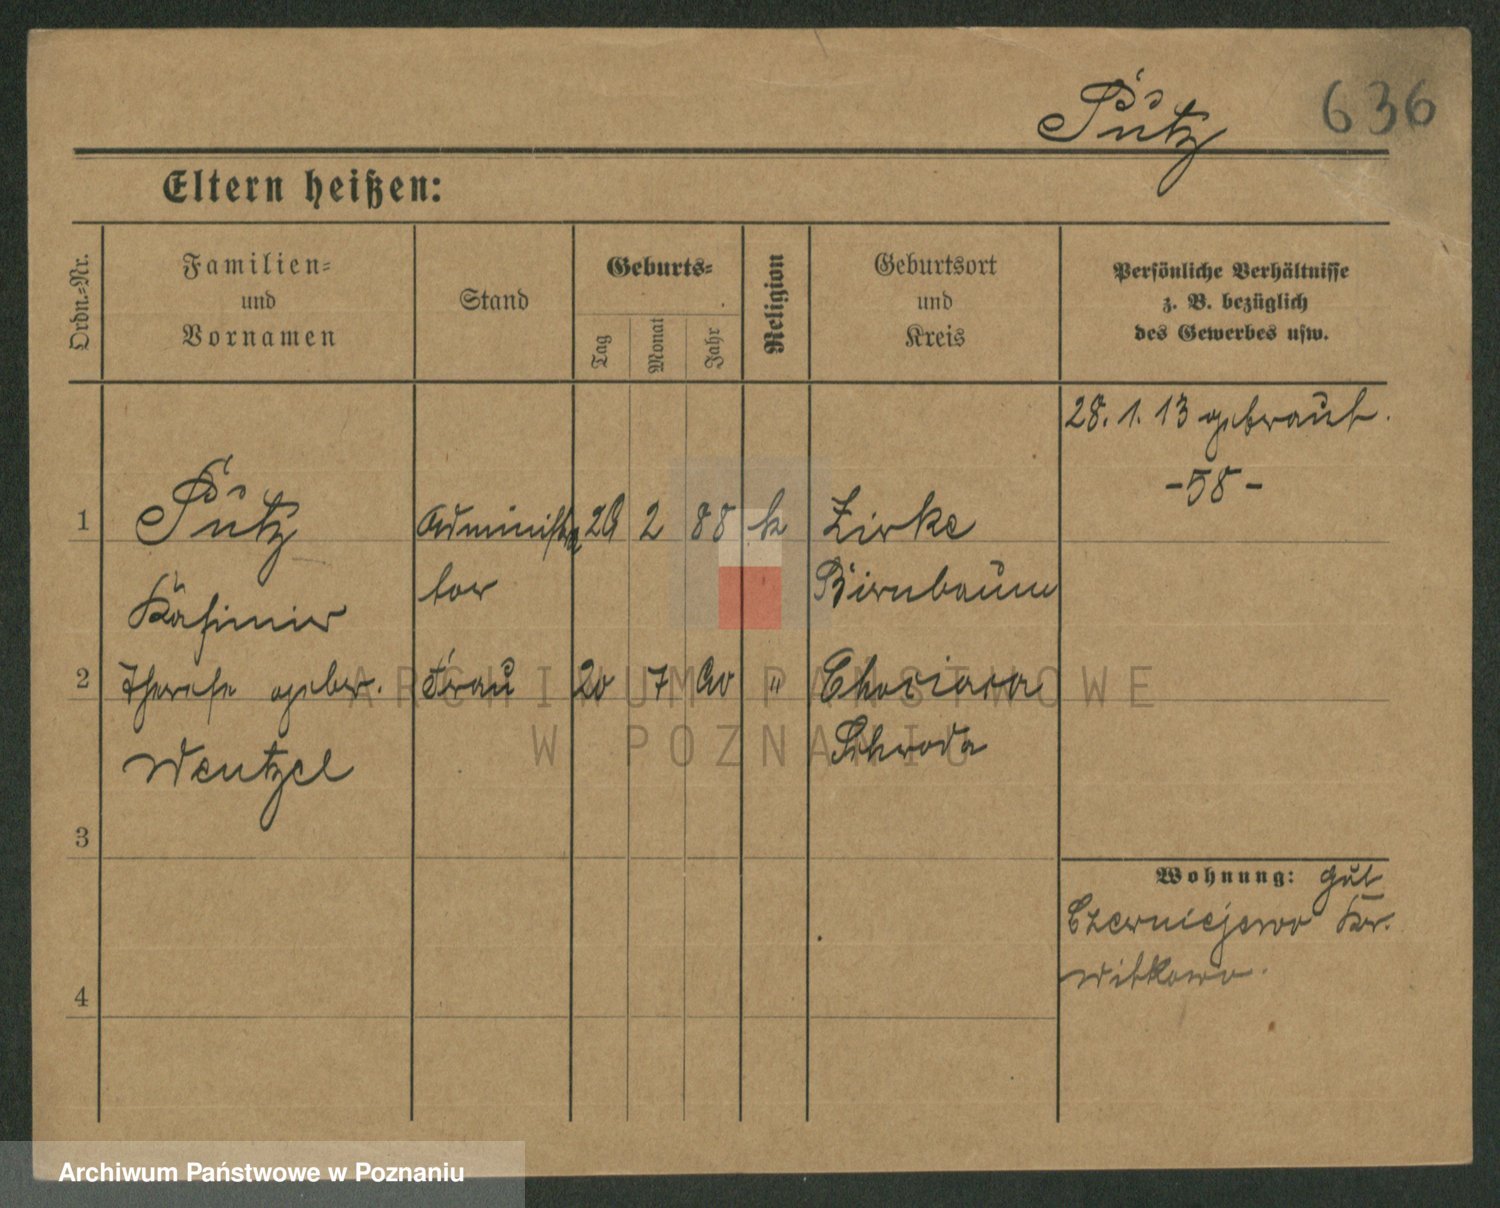 Pütz
636
Eltern heißen:
Ordn.-Nr.
Familien-
und
Vornamen
Stand
Geburts-
Tag
Monat
Jahr
Religion
Geburtsort
und
Kreis
Persönliche Verhältnisse
z. B. bezüglich
des Gewerbes usw.
28. 1. 13 getraut.
-58-
1 Pütz Administra 29 2 88 k Zirke
Kasimir tor Birnbaum
2 Therese geber. Frau 20 7 90 " Chocicza
Wentzel Schroda
3
Wohnung: Gut
Czerniejewo Kr.
Witkowo.
4
ARCHIWUM PAŃSTWOWE
W POZNANIU
Archiwum Państwowe w Poznaniu